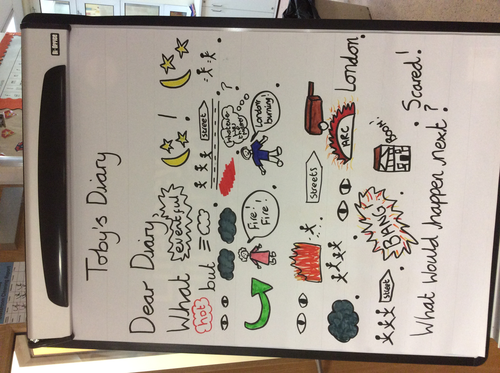 Toby's Diary
Dear Diary,
What eventful !
hot but street
?
Fire! Fire! London burning!
streets
ARC London.
BANG BOOM!
street Scared!
What would happen next?